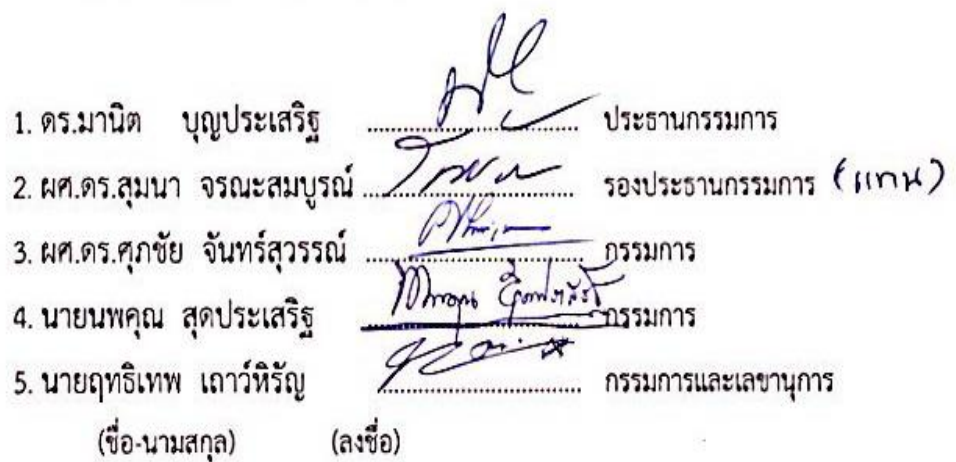 1. ดร.มานิต บุญประเสริฐ ........................ ประธานกรรมการ
2. ผศ.ดร.สุมนา จรณะสมบูรณ์ ........................ รองประธานกรรมการ (แทน)
3. ผศ.ดร.ศุภชัย จันทร์สุวรรณ์ ........................ กรรมการ
4. นายนพคุณ สุดประเสริฐ ........................ กรรมการ
5. นายฤทธิเทพ เถาว์หิรัญ ........................ กรรมการและเลขานุการ
(ชื่อ-นามสกุล) (ลงชื่อ)